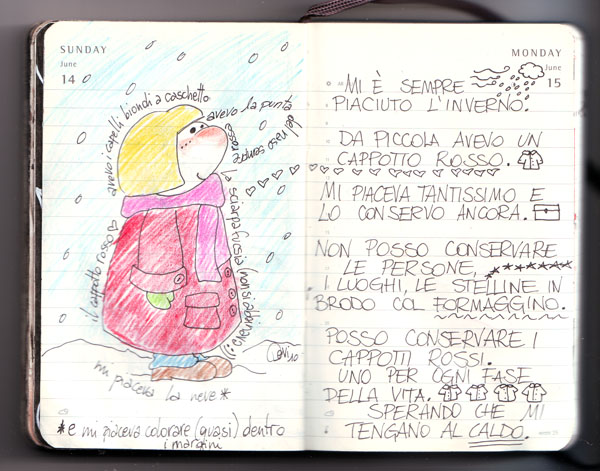 SUNDAY
June
14
avevo i capelli biondi a caschetto
avevo la punta
del naso sempre
rossa
la sciarpa fuxia (non si abbi
il cappotto rosso
mi piaceva la neve *
*e mi piaceva colorare (quasi) dentro
i margini
MONDAY
June
15
MI È SEMPRE
PIACIUTO L'INVERNO.
DA PICCOLA AVEVO UN
CAPPOTTO ROSSO.
MI PIACEVA TANTISSIMO E
LO CONSERVO ANCORA.
NON POSSO CONSERVARE
LE PERSONE,
I LUOGHI, LE STELLINE IN
BRODO COL FORMAGGINO.
POSSO CONSERVARE I
CAPPOTTI ROSSI.
UNO PER OGNI FASE
DELLA VITA.
SPERANDO CHE MI
TENGANO AL CALDO.